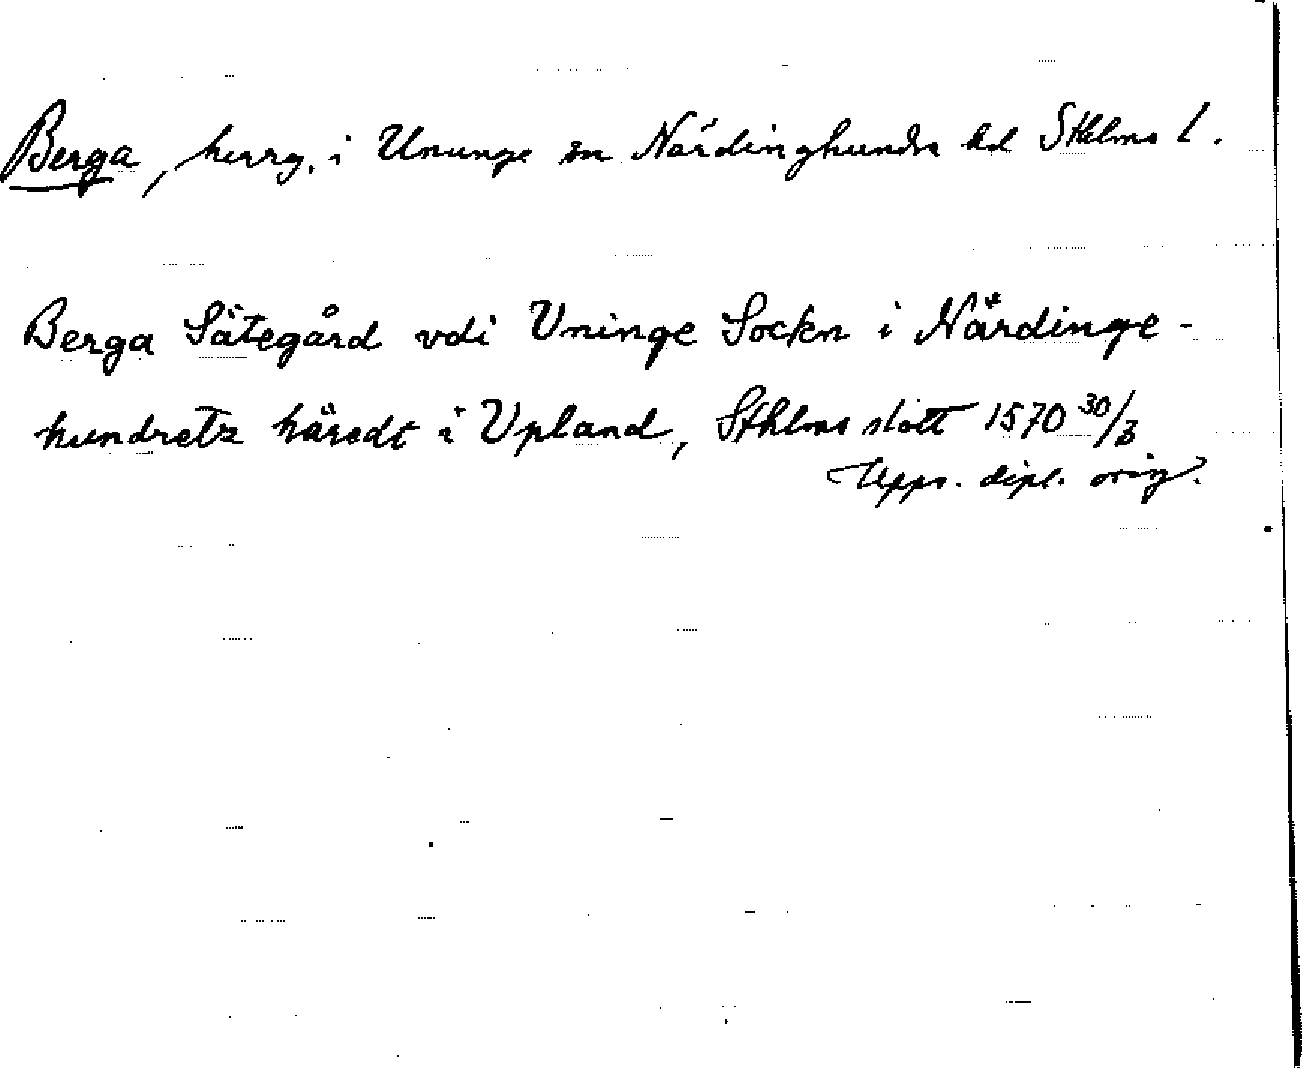 Berga, herrg. i Ununge sn Närdinghundra hd Sthlms l.
Berga Sätegård vdi Uninge Sockn i Närdinge-
hundretz häredt i Upland, Sthlms slott 1570 30/3
Upps. dipl. orig.